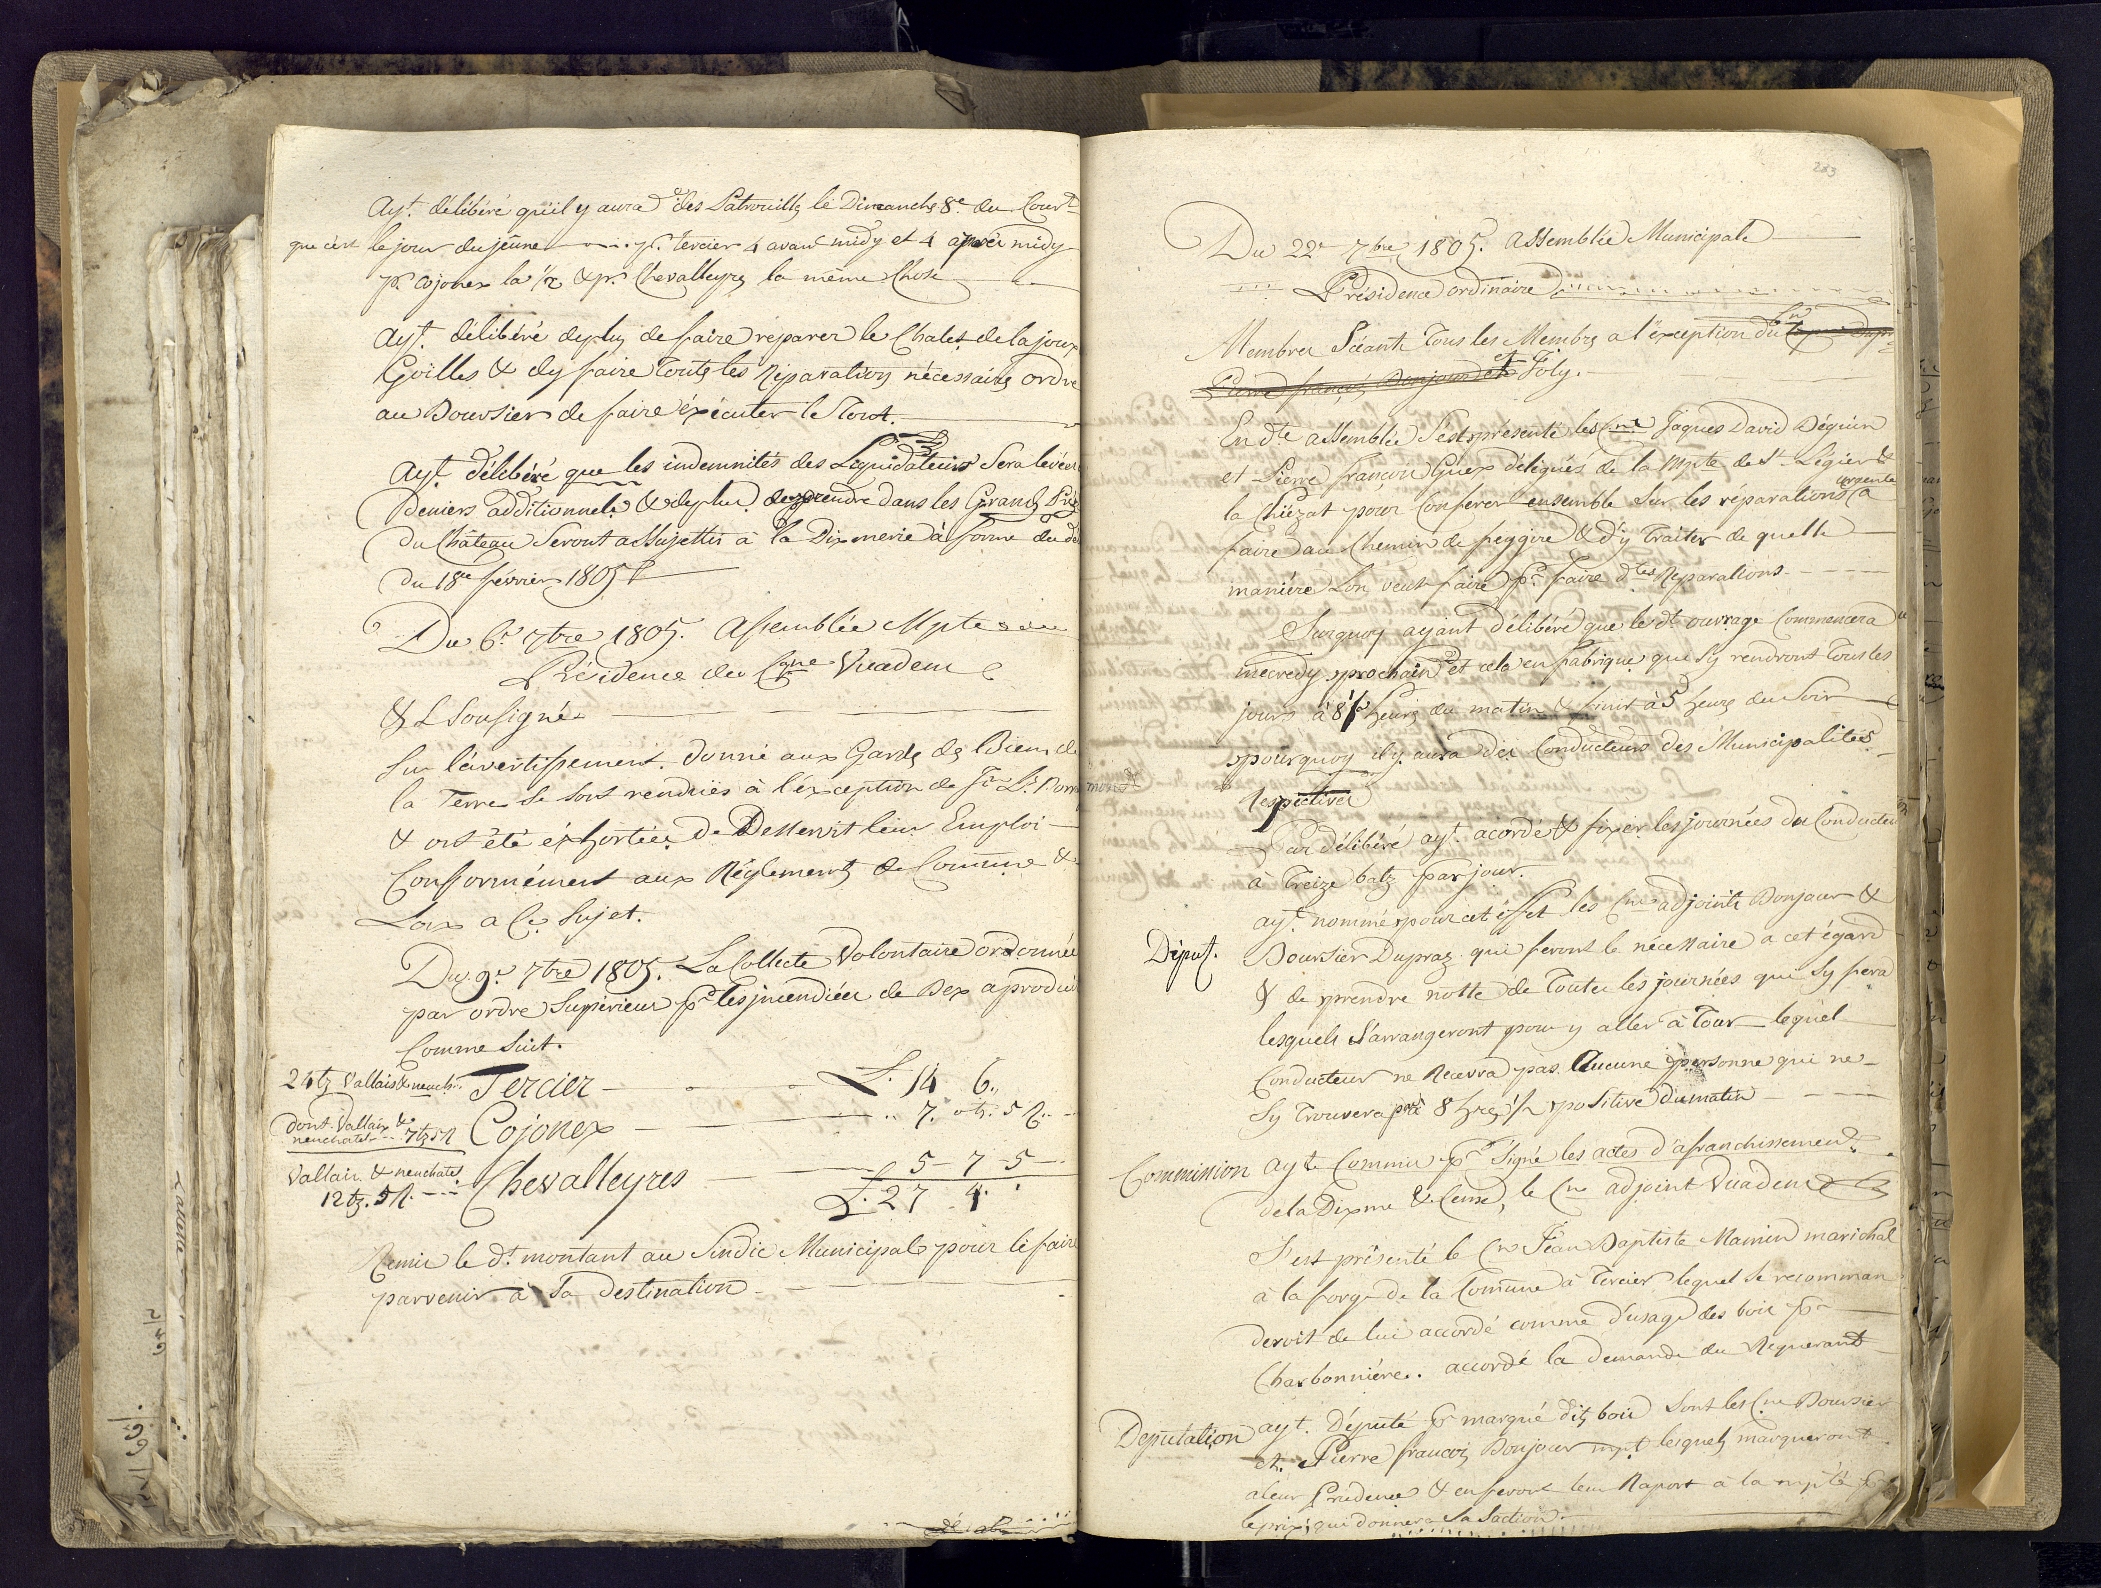 Ayt. délibéré qu'il y aura des Patrouilles le Dimanche 8e. du Court
que c'est le jour du jeûne p. Tercier 4 avant midy et 4 après midy
pr. Cojonex la 1/2 & pr. Chevalleyres la même Chose
Ayt. délibéré deplus de faire réparer le Chalet de la joux
Goilles & dy faire Toutes les Réparations nécessaires ordre
au Boursier de faire éxécuter le Tout.
Ayt. délibéré que les indemnités des Liquidateurs Sera levée
Deniers additionnels & deplus de prendre dans les Grands Préz
du Château Seront assujettis à la Dixmerie à forme du dé
du 18e février 1805
Du 6e. 7bre 1805. Assemblée Mpte
Présidence du Cyne Vuadens
& L Sousigné
Sur l'avertissement donné aux Gardes des Biens de
la Terre Se Sont rendües à l'éxception de Fr. Ls. Bommont
& ont été éxhortées de Desservit leur Emploi
Conformément aux Réglements de Commune &
Loix a Ce Sujet.
Du 9e. 7bre 1805. La Collecte Volontaire ordonnée
par ordre Supérieur pr les jncendiées de Bex a produit
Comme Suit.
24 bz Vallais & neuch. Tercier L. 14 6.
dont Vallais &
neuchatel 7 bz 5 r Cojonex 7. 5 r.
Vallais & neuchatel Chevalleyres 5 - 7 - 5
12 bz. 5 r. L. 27 4.
Remis le dt. montant au Sindic Municipal pour le faire
parvenir à Sa destination
233
Du 22e 7bre 1805. Assemblée Municipale
Présidence ordinaire
Membres Séants Tous les Membres a l'exception du Cn
Pierre françois Bonjour et Foly.
En dte assemblée S'est présenté les Cne Jaques David Déguin
et Pierre françois Guex déligués de la Mpte de St. Légier &
la Chiézat pour Conferer ensemble Sur les reparations urgente a
faire au Chemin de peggire & d'y Traiter de quelle
maniére L'on veut faire pr. faire dtes Reparations.
Surquoy ayant délibéré que le dt ouvrage Commencera
mecredy prochain et cela en fabrique que Sy rendront Tous les
jours à 8 1/2 heures du matin & finir à 5 heures du Soir
pourquoy il y aura des Conducteurs des Municipalités
Respectives
Par délibéré ayt. acordé & fixer les journées du Conducteur
à Treize batz par jour.
ayt. nommés pour cet éffet les Cne adjoints Bonjour &
Déput. Boursier Dupraz qui feront le nécessaire a cet égard
& de prendre notte de Toutes les journées que Sy fera
lesquels S'arrangeront pour y aller à Tour lequel
Conducteur ne Recevra pas Aucune personne qui ne
Sy Trouvera pas à 8 hres 1/2 positive du matin
Commission ayte Commis pr Signé les actes d'afranchissement
de la Dixme & Cense, le Cn adjoint Vuadens
S'est présenté le Cn Jean Baptiste Mamin marichal
à la forge de la Commune à Tercier lequel Se recomman
deroit de lui accordé comme d'usage des bois pr
Charbonniére. accordé la demande du Requerant
Députation ayt. Députté pr marqué dits bois Sont les Cne Boursier
et Pierre françois Bonjour mpt lesquels marqueront
a leur Prudence & en feront leur Raport à la mpté pr
le prix qui donnera Sa Saction.